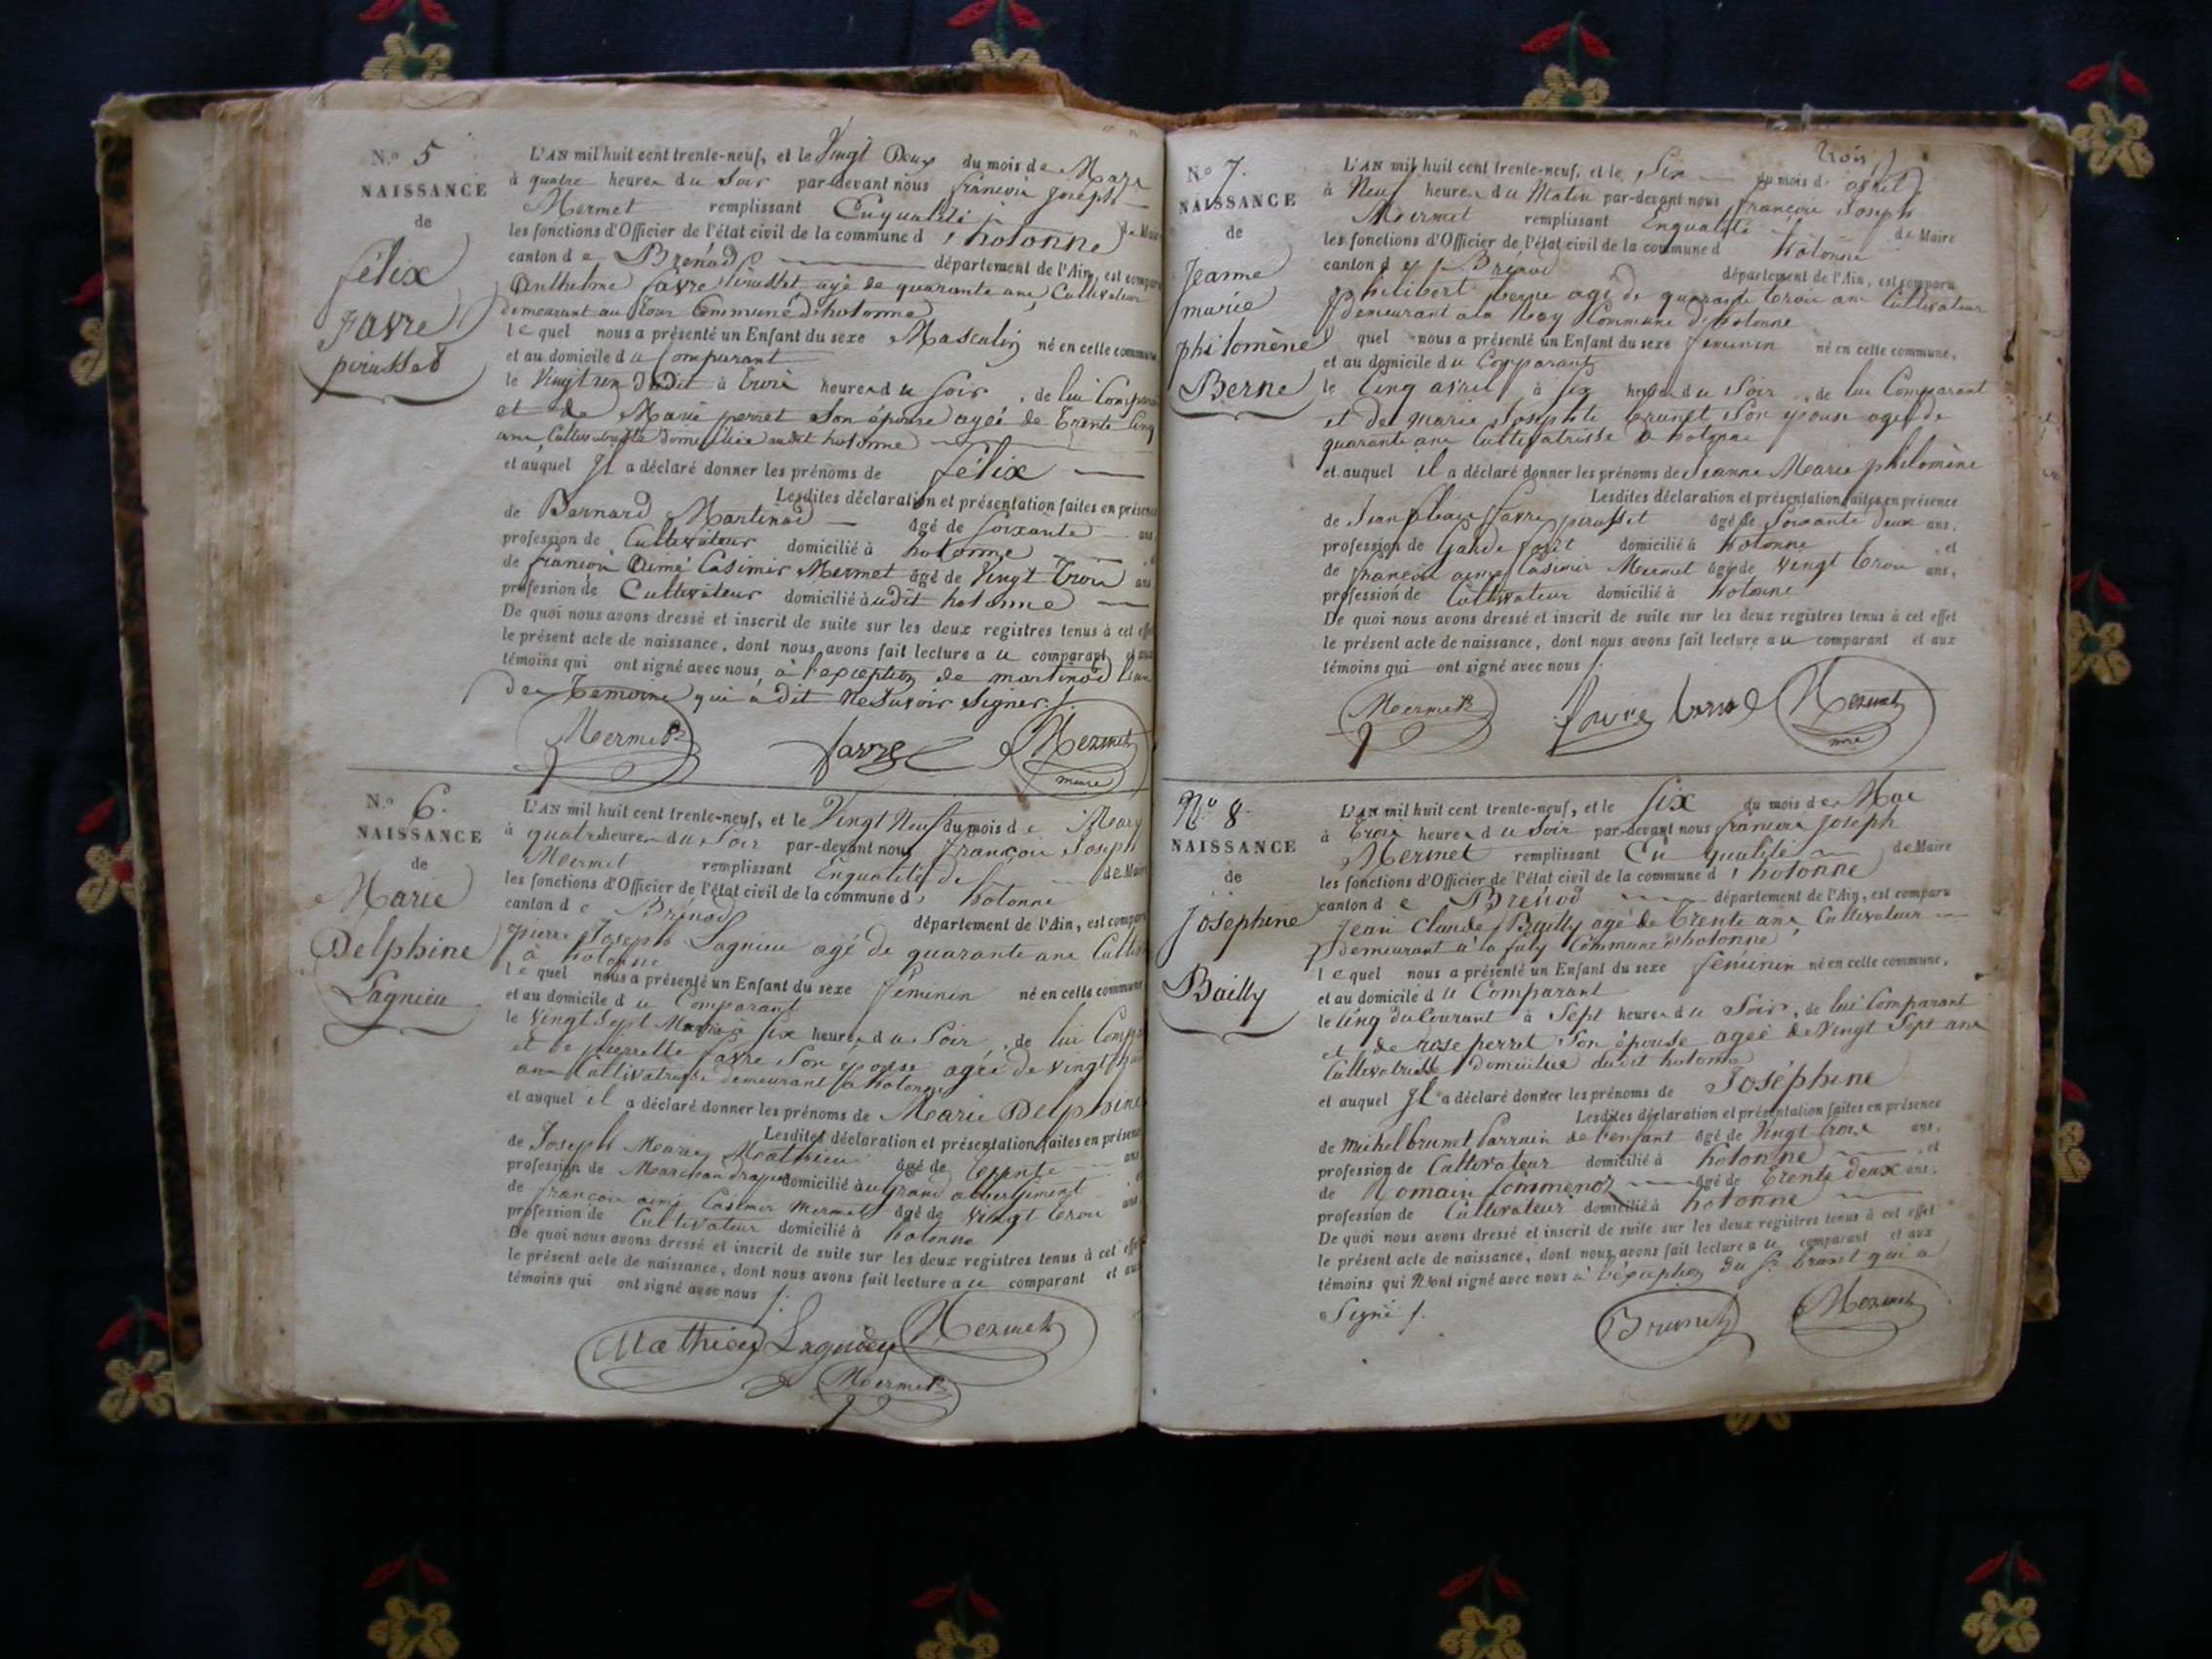 N.o 5
NAISSANCE
de
félix
favre
pérusset
L'AN mil huit cent trente-neuf, et le Vingt Deux du mois de Mars
à quatre heures du Soir par-devant nous françois joseph
Mermet remplissant Enqualité
les fonctions d'Officier de l'état civil de la commune d'hotonne de Maire
canton de Brénod département de l'Ain, est comparu
Anthelme favre pérusset agé de quarante ans Cultivateur
demeurant au Commune d'hotonne
lequel nous a présenté un Enfant du sexe Masculin né en cette commune
et au domicile du Comparant
le Vingt un Dudit à trois heures du Soir, de lui Comparant
et de Marie perret Son épouse agée de trente Cinq
ans Cultivatrisse domiciliée audit hotonne
et auquel Il a déclaré donner les prénoms de félix
Lesdites déclaration et présentation faites en présence
de Bernard Martinod âgé de Soixante ans
profession de Cultivateur domicilié à hotonne
de françois Aimé Casimir Mermet âgé de Vingt trois ans
profession de Cultivateur domicilié audit hotonne
De quoi nous avons dressé et inscrit de suite sur les deux registres tenus à cet effet
le présent acte de naissance, dont nous avons fait lecture au comparant et aux
témoins qui ont signé avec nous, à l'exception de martinod l'un
des temoins qui a dit ne Savoir Signer
Mermet favre Mermet
maire
N.o 6
NAISSANCE
de
Marie
Delphine
Lagnieu
L'AN mil huit cent trente-neuf, et le Vingt Neuf du mois de Mars
à quatre heures du Soir par-devant nous françois Joseph
Mermet remplissant Enqualité de de Maire
les fonctions d'Officier de l'état civil de la commune d' hotonne
canton de Brénod département de l'Ain, est comparu
pierre Joseph Lagnieu agé de quarante ans
à hotonne
lequel nous a présenté un Enfant du sexe féminin né en cette commune
et au domicile du Comparant
le Vingt Sept Mars à Six heures du Soir, de lui
et de pierrette favre Son epouse agée de vingt
ans Cultivatrisse demeurant à hotonne
et auquel il a déclaré donner les prénoms de Marie Delphine
Lesdites déclaration et présentation faites en présence
de Joseph Marie Mathieu âgé de trente ans
profession de Marchand drapier domicilié au Grand abbergement
de françois aimé Casimir Mermet âgé de Vingt trois ans
profession de Cultivateur domicilié à hotonne
De quoi nous avons dressé et inscrit de suite sur les deux registres tenus à cet effet
le présent acte de naissance, dont nous avons fait lecture au comparant et aux
témoins qui ont signé avec nous
Mathieu Lagnieu Mermet
Mermet
trois
N.o 7
NAISSANCE
de
Jeanne
marie
philomène
Berne
L'AN mil huit cent trente-neuf, et le Six du mois d'avril
à Neuf heures du Matin par-devant nous françois Joseph
Mermet remplissant Enqualité de Maire
les fonctions d'Officier de l'état civil de la commune d hotonne
canton de Brénod département de l'Ain, est comparu
philibert berne agé de quarante trois ans Cultivateur
demeurant à la Commune d'hotonne
quel nous a présenté un Enfant du sexe féminin né en cette commune,
et au domicile du Comparant
le Cinq avril à Six heures du Soir, de lui Comparant
et de Marie Josephte brunet Son epouse agée de
quarante ans Cultivatrisse à hotonne
et auquel il a déclaré donner les prénoms de Jeanne Marie philomène
Lesdites déclaration et présentation faites en présence
de favre pérusset âgé de Soixante deux ans,
profession de Garde forêt domicilié à hotonne et
de françois aimé Casimir Mermet âgé de Vingt trois ans,
profession de Cultivateur domicilié à hotonne
De quoi nous avons dressé et inscrit de suite sur les deux registres tenus à cet effet
le présent acte de naissance, dont nous avons fait lecture au comparant et aux
témoins qui ont signé avec nous
Mermet favre berne Mermet
mre
N.o 8
NAISSANCE
de
Joséphine
Bailly
L'AN mil huit cent trente-neuf, et le Six du mois de Mai
à trois heures du Soir par-devant nous françois Joseph
Mermet remplissant En qualité de Maire
les fonctions d'Officier de l'état civil de la commune d'hotonne
canton de Brénod département de l'Ain, est comparu
Jean Claude Bailly agé de trente ans Cultivateur
demeurant à la Commune d'hotonne
lequel nous a présenté un Enfant du sexe féminin né en cette commune,
et au domicile du Comparant
le Cinq du Courant à Sept heures du Soir, de lui Comparant
et de rose perret Son épouse agée de Vingt Sept ans
Cultivatrisse domiciliée audit hotonne
et auquel Il a déclaré donner les prénoms de Joséphine
Lesdites déclaration et présentation faites en présence
de Michel brunet Parrain de l'enfant âgé de Vingt trois ans,
profession de Cultivateur domicilié à hotonne et
de Romain âgé de trente deux ans,
profession de Cultivateur domicilié à hotonne
De quoi nous avons dressé et inscrit de suite sur les deux registres tenus à cet effet
le présent acte de naissance, dont nous avons fait lecture au comparant et aux
témoins qui N'ont signé avec nous à l'éxception du Sr. brunet qui a
Signé
Brunet Mermet